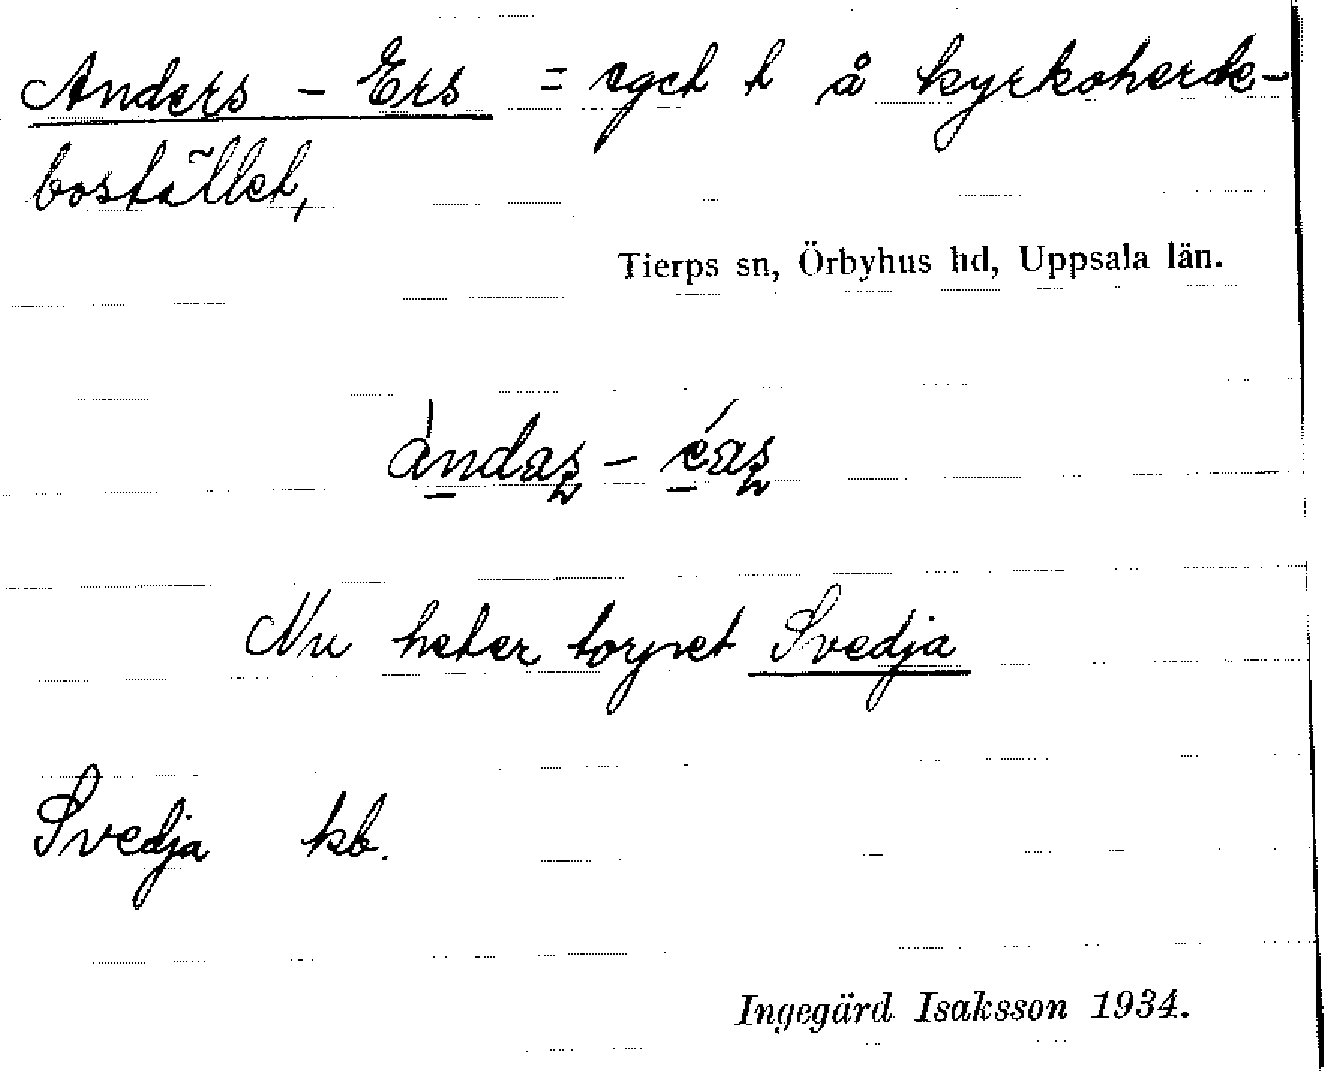 Anders - Ers = eget t å kyrkoherde-
bostället,
Tierps sn, Örbyhus hd, Uppsala län.
ándaʂ - éaʂ
Nu heter torpet Svedja
Svedja kb.
Ingegärd Isaksson 1934.